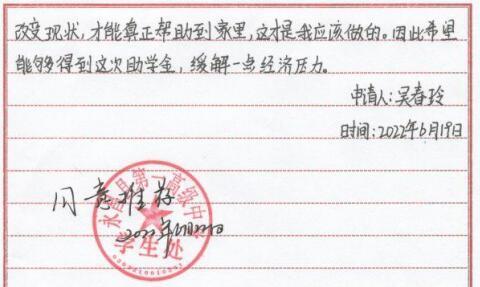 改变现状，才能真正帮助到家里，这才是我应该做的。因此希望
能够得到这次助学金，缓解一点经济压力。
申请人：吴春玲
时间：2022年6月19日
同意推荐
永昌县第一高级中学
学生处